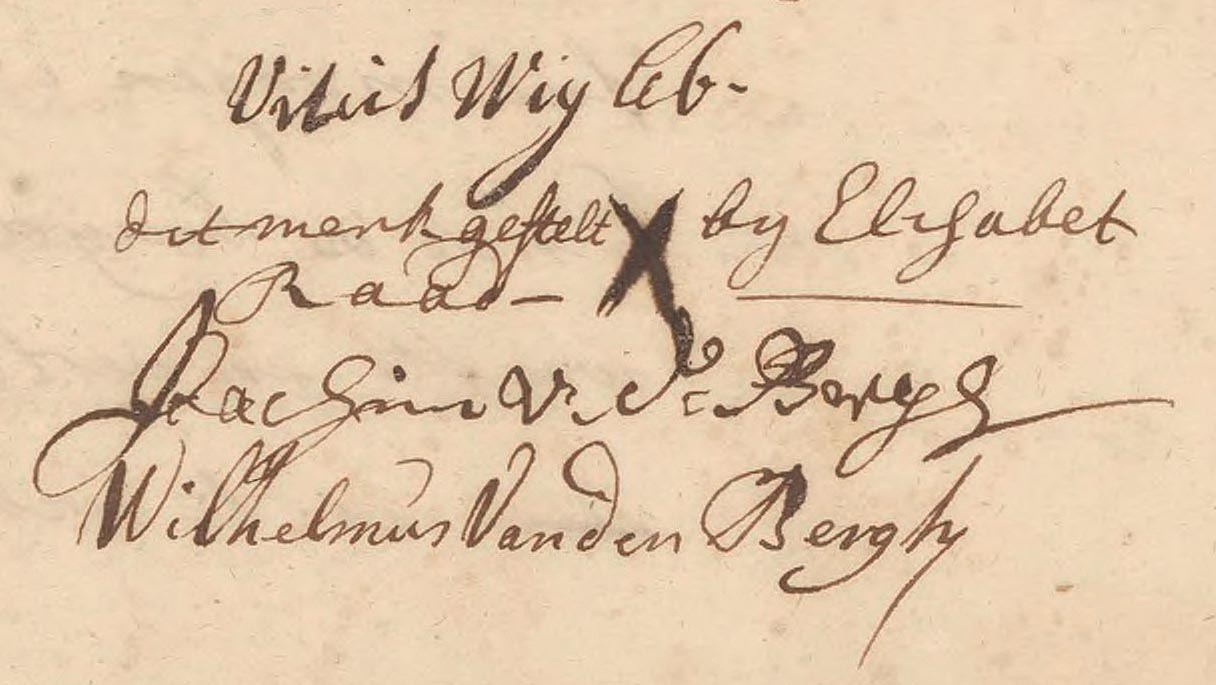 Vitus Wigleb.
dit merk gestelt X by Elisabet
Raad —
Joachim v. d. Bergh
Wilhelmus Vanden Bergh